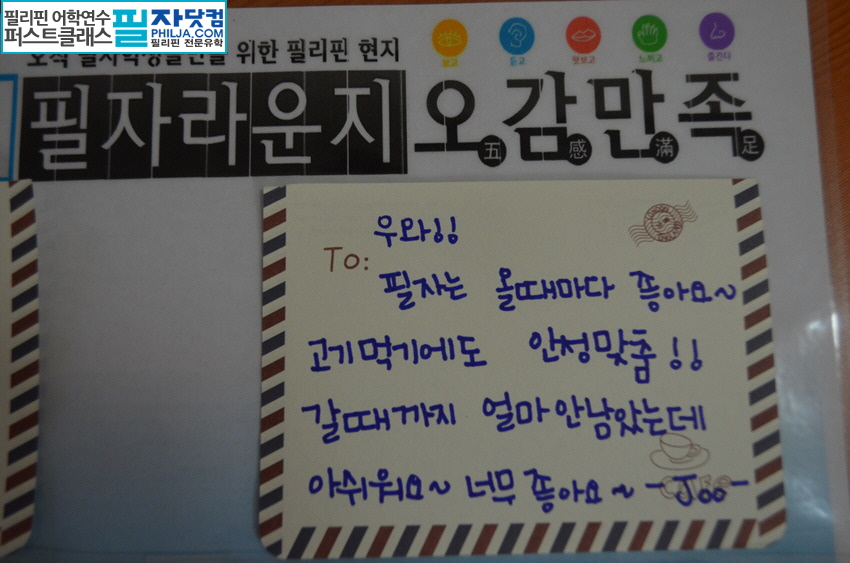 필리핀 어학연수
퍼스트클래스
필자닷컴
PHILJA.COM
필리핀 전문유학
오직 필자학생들만을 위한 필리핀 현지
보고
듣고
맛보고
느끼고
즐긴다
필자라운지 오감만족
五 感 滿 足
우와!!
To:
필자는 올때마다 좋아요~
고기먹기에도 안성맞춤!!
갈때까지 얼마안남았는데
아쉬워요~ 너무 좋아요~ -Joo-